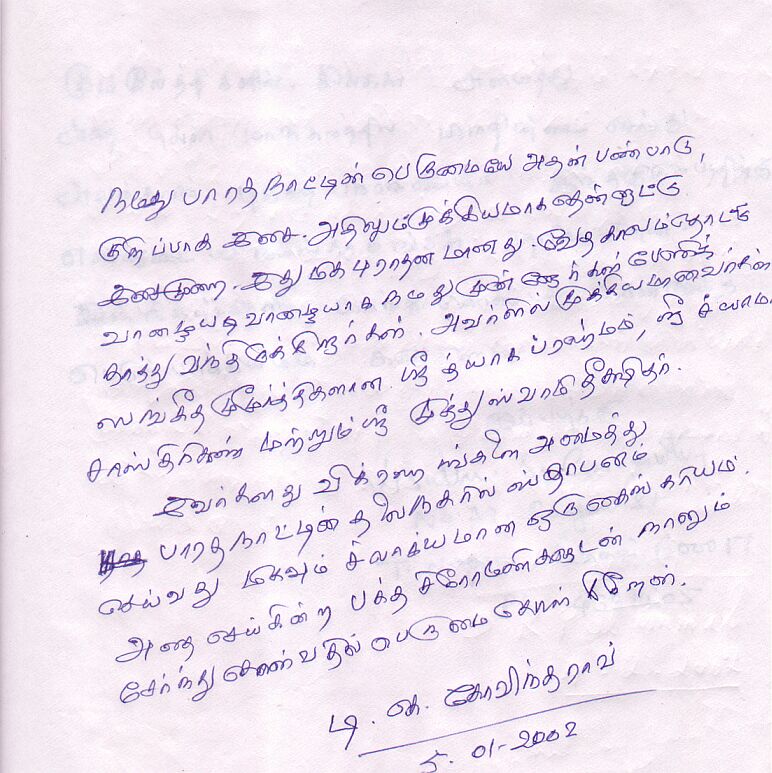 நமது பாரத நாட்டின் பெருமையே அதன் பண்பாடு,
குறிப்பாக இசை. அதிலும் முக்கியமாக தென்னாட்டு
இசைமுறை. இது மிக புராதன மானது. வேத காலம் தொட்டு
வாழையடி வாழையாக நமது முன்னோர்கள் பேணிக்
காத்து வந்திருக்கிறார்கள். அவர்களில் முக்கியமானவர்கள்
ஸங்கீத மும்மூர்த்திகளான ஸ்ரீ தியாக ப்ரஹ்மம், ஸ்ரீ ச்யாமா
சாஸ்திரிகள் மற்றும் ஸ்ரீ முத்துஸ்வாமி தீக்ஷிதர்.
இவர்களது விக்ரஹ ங்களை அமைத்து
பாரத நாட்டின் தலைநகரில் ஸ்தாபனம்
செய்வது மிகவும் சிலாக்யமான ஒரு கைங்கரியம்.
அதை செய்கின்ற பக்த சிரோமணிகளுடன் நானும்
சேர்ந்து கொள்வதில் பெருமை கொள்கிறேன்.
டி. கே. கோவிந்தராவ்
5. 01-2002